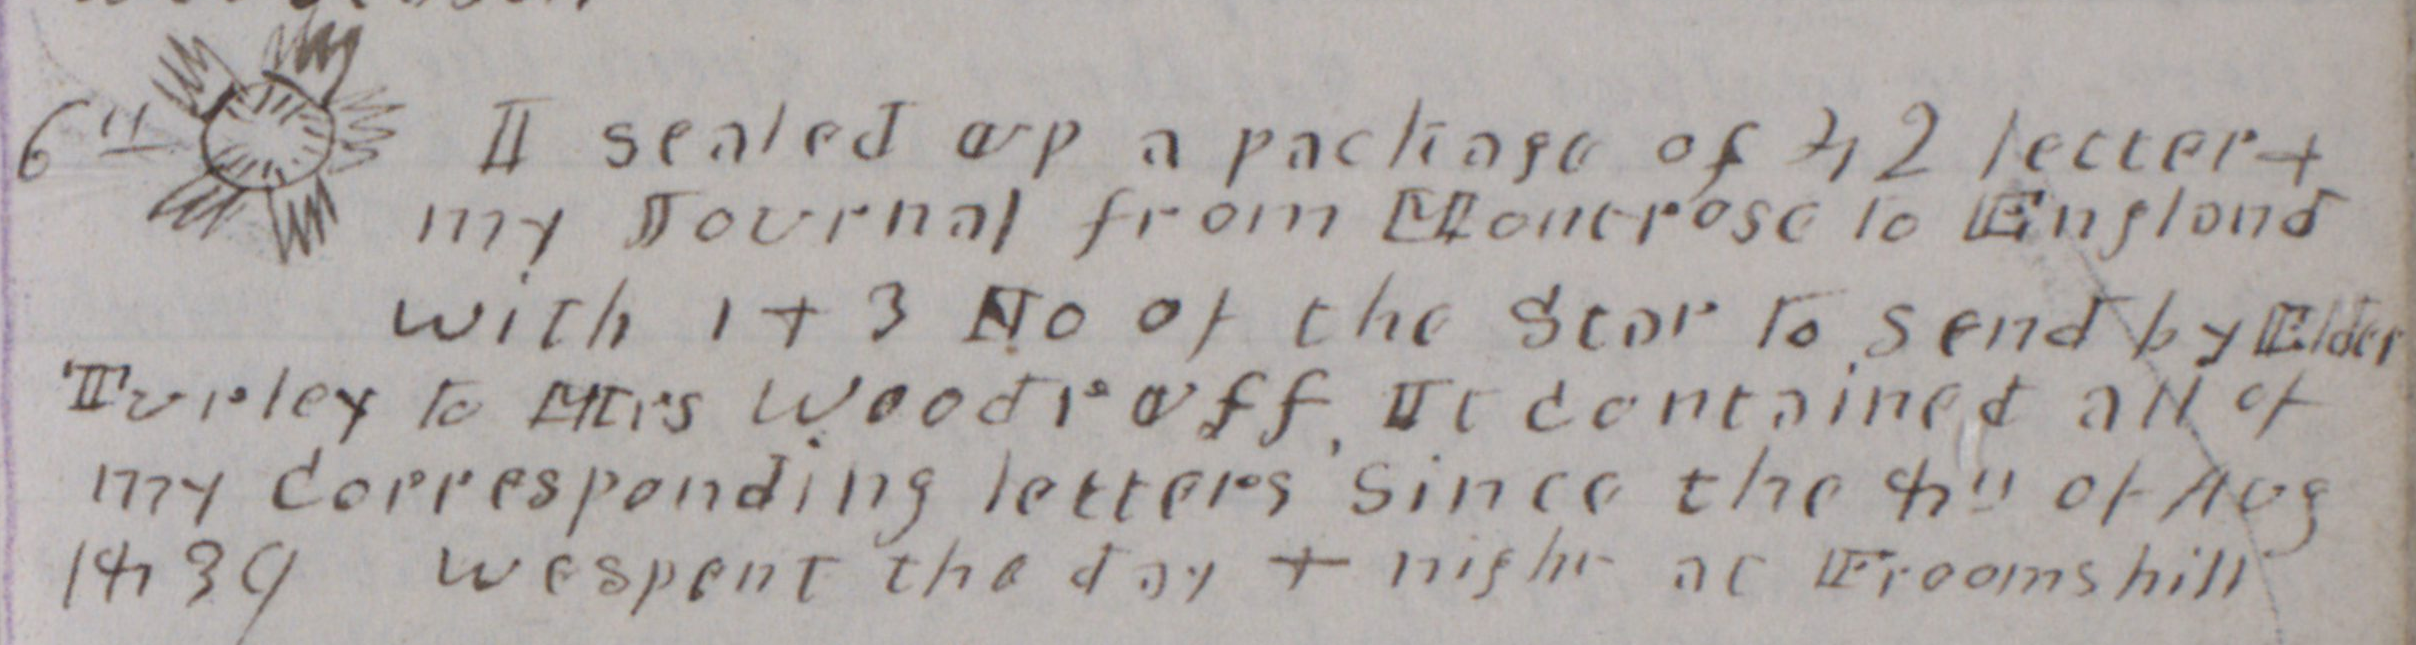 6th I sealed up a package of 42 letters +
my Journal from Montrose to England
with 1 + 3 No of the Star to send by Elder
Turley to Mrs Woodruff, It contained all of
my Corresponding letters Since the 8th of Aug
1839 we spent the day + night at Froomshill